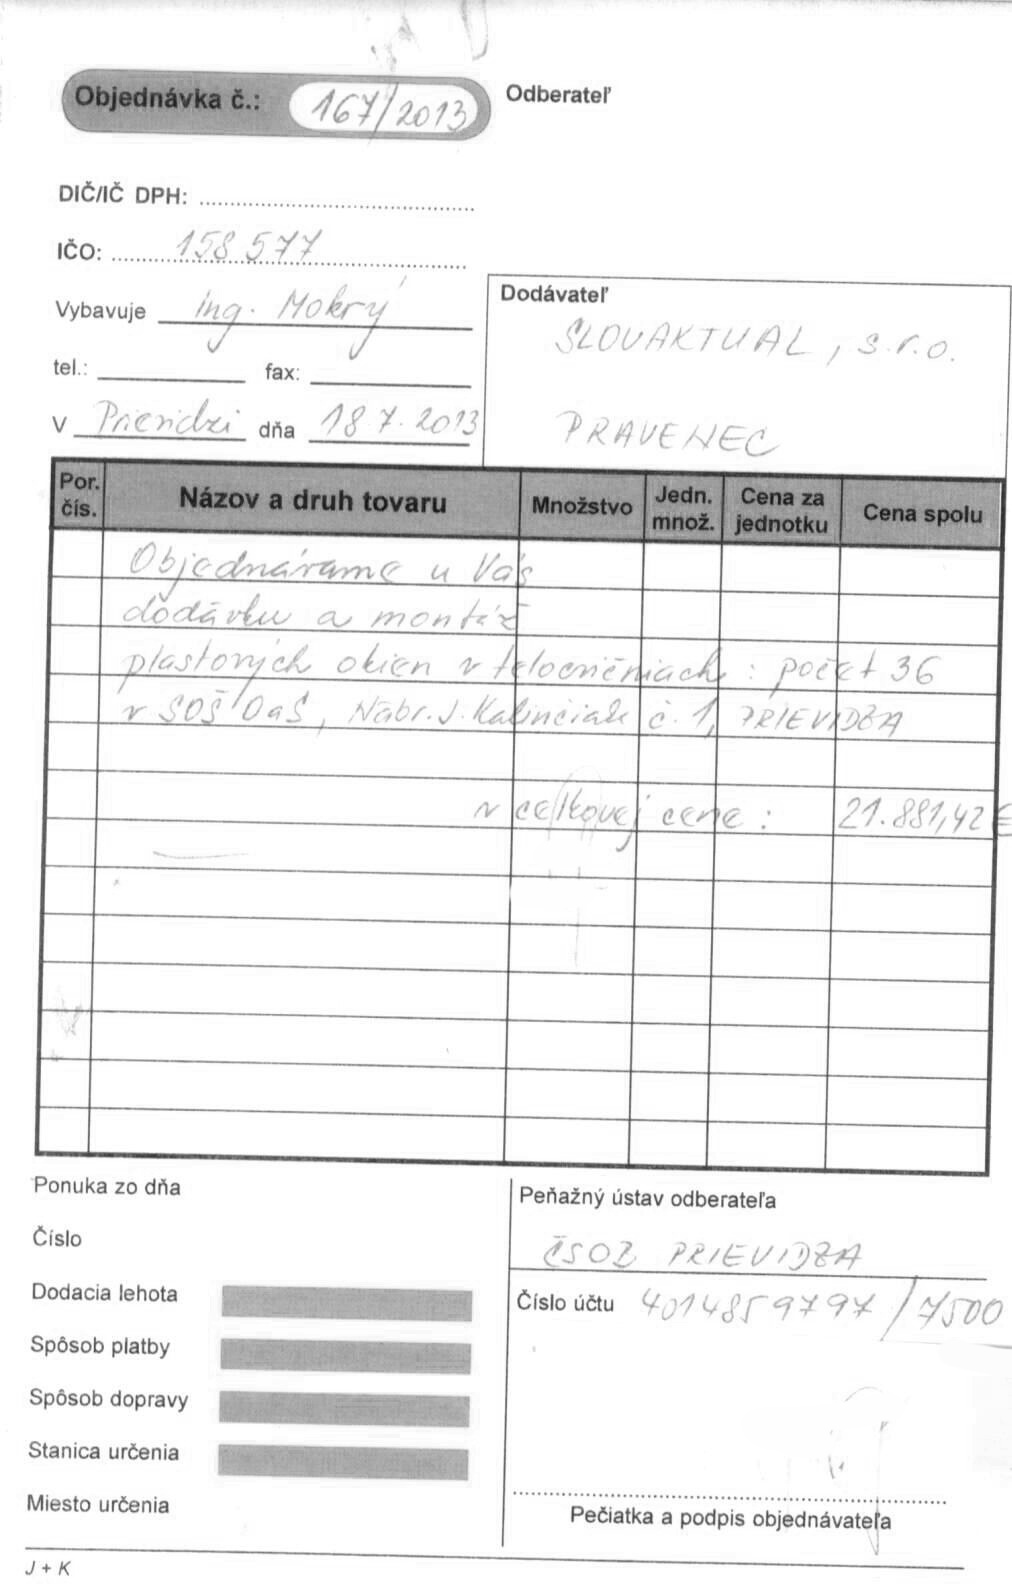 Objednávka č.: 167/2013
Odberateľ
DIČ/IČ DPH:
IČO: 158 577
Vybavuje Ing. Mokrý
tel.: fax:
V Prievidzi dňa 18.7.2013
Dodávateľ
SLOVAKTUAL, s.r.o.
PRAVENEC
Por. čís. Názov a druh tovaru Množstvo Jedn. množ. Cena za jednotku Cena spolu
Objednávame u Vás
dodávku a montáž
plastových okien v telocvičniach : počet 36
v SOŠ OaS, Nábr. J. Kalinčiaka č. 1, PRIEVIDZA
v celkovej cene : 21.881,42 €
Ponuka zo dňa
Číslo
Dodacia lehota
Spôsob platby
Spôsob dopravy
Stanica určenia
Miesto určenia
Peňažný ústav odberateľa
ČSOB PRIEVIDZA
Číslo účtu 4014859797/7500
Pečiatka a podpis objednávateľa
J + K